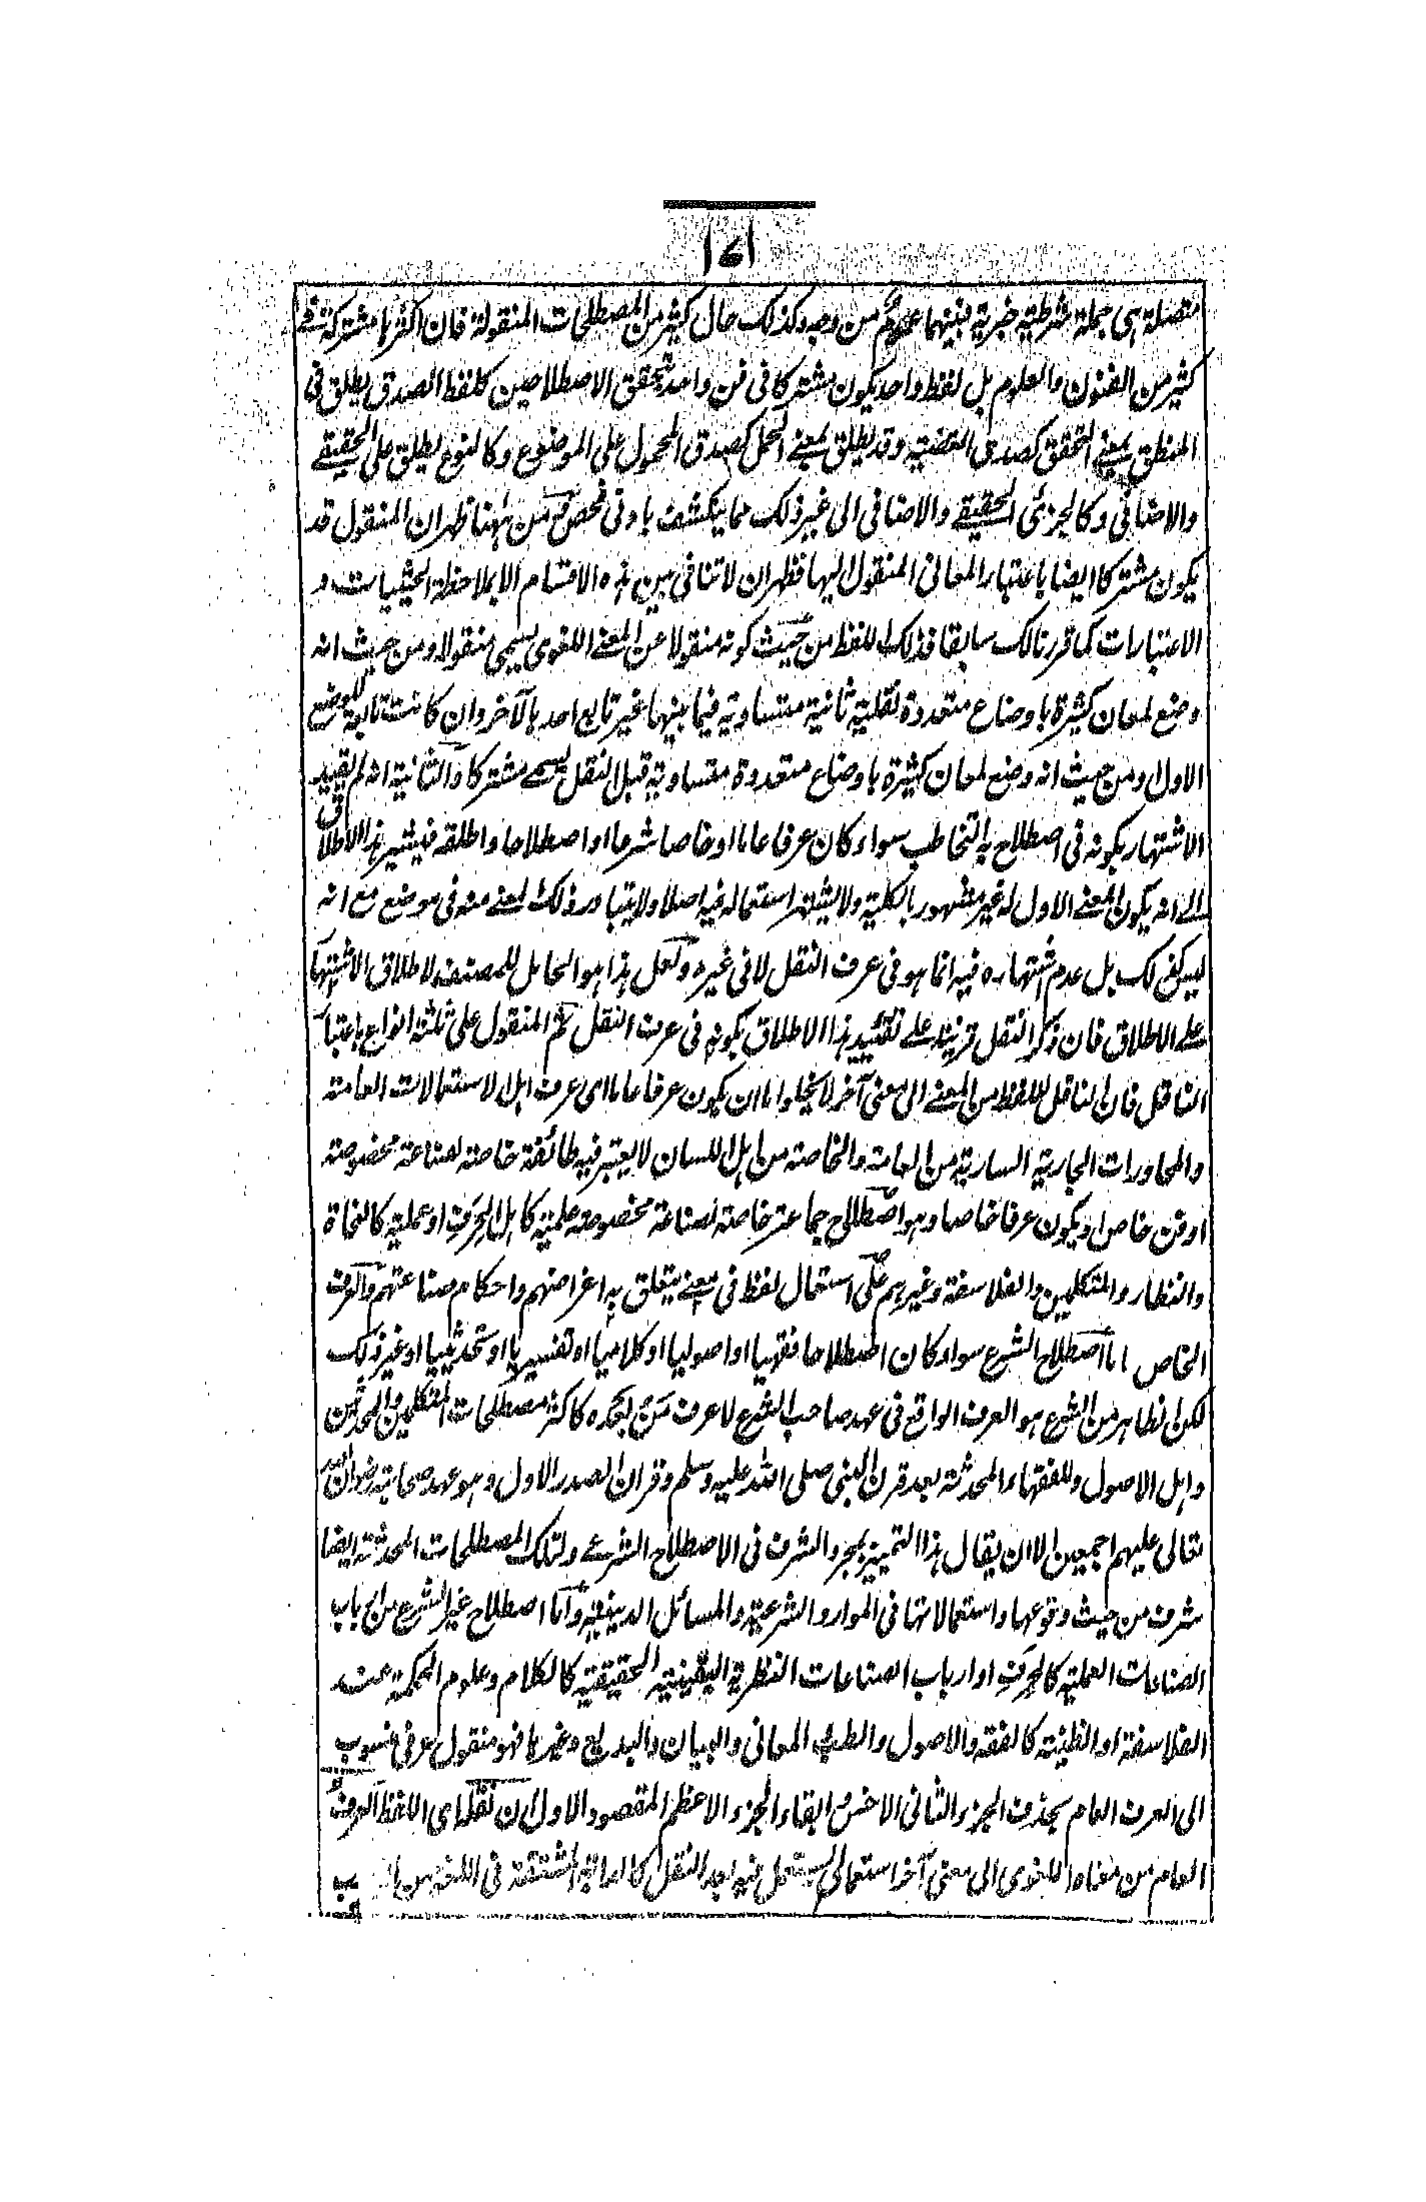 ١٧١
متصلة هى جملة شرطية خبرية فبينهما عموم من وجه وكذلك حال كثير من المصطلحات المنقولة فان اكثرها مشتركة فى
كثير من الفنون والعلوم بل لفظ واحد يكون مشتركا فى فن واحد بتحقق الاصطلاحين كلفظ الصدق يطلق فى
المنطق بمعنے التحقق كصدق القضية وقد يطلق بمعنے الحمل كصدق المحمول على الموضوع وكالنوع يطلق على الحقيقے
والاضافى وكالجزئى الحقيقے والاضافى الى غير ذلك مما ينكشف بادنى فحص فمن ههنا ظهر ان المنقول قد
يكون مشتركا ايضا باعتبار المعانى المنقول اليها فظهر ان لا تنافى بين هذه الاقسام الا بملاحظة الحيثيات و
الاعتبارات كما قررنا لك سابقا فذلك اللفظ من حيث كونه منقولا عن المعنے اللغوى يسمى منقولا ومن حيث انه
وضع لمعان كثيرة باوضاع متعددة نقلية ثانية متساوية فيما بينها غير تابع احد بالآخر وان كانت تابعة للوضع
الاول ومن حيث انه وضع لمعان كثيرة باوضاع متعددة متساوية قبل النقل يسمے مشتركا والثانية انه لم يقيد
الاشتهار بكونه فى اصطلاح به التخاطب سواء كان عرفا عاما او خاصا شرعا او اصطلاحا واطلقه فيشير هذا الاطلاق
الے انه يكون المعنے الاول له غير مشهور بالكلية ولا يشتهر استعماله فيه اصلا ولا يتبادر ذلك المعنے منه فى موضع مع انه
ليس كذلك بل عدم اشتهاره فيه انما هو فى عرف النقل لا فى غيره ولعل هذا هو الحامل للمصنف لاطلاق الاشتهار
علے الاطلاق فان ذكر النقل قرينة علے تقييد هذا الاطلاق بكونه فى عرف النقل ثم المنقول على ثلثة انواع باعتبار
الناقل فان الناقل للفظ من المعنے الى معنى آخر لا يخلوا اما ان يكون عرفا عاما اى عرف اهل الاستعمالات العامة
والمحاورات الجارية السارية من العامة والخاصة من اهل اللسان لا يعتبر فيه طائفة خاصة لصناعة مخصوصة
او فن خاص او يكون عرفا خاصا وهو اصطلاح جماعة خاصة لصناعة مخصوصة علمية كاهل الحرف او عملية كالنحاة
والنظار والمتكلمين والفلاسفة وغيرهم على استعمال لفظ فى معنے يتعلق به اغراضهم واحكام صناعتهم والعرف
الخاص اما اصطلاح الشرع سواء كان اصطلاحا فقهيا او اصوليا او كلاميا او تفسيريا او تحديثيا او غير ذلك
لكن الظاهر من الشرع هو العرف الواقع فى عهد صاحب الشرع لا عرف من بعده كاكثر مصطلحات المتكلمين والمحدثين
واهل الاصول والفقهاء المحدثة بعد قرن النبى صلى الله عليه وسلم وقران الصدر الاول وهو عهد صحابته رضوان الله
تعالى عليهم اجمعين الا ان يقال هذا التمييز بمجرد الشرف فى الاصطلاح الشرعے ولتلك المصطلحات المحدثة ايضا
شرف من حيث وقوعها واستعمالاتها فى الموارد الشرعية والمسائل الدينية واما اصطلاح غير الشرع من ارباب
الصناعات العملية كالحرف او ارباب الصناعات النظرية اليقينية الحقيقية كالكلام وعلوم الحكمة عند
الفلاسفة او الظنية كالفقه والاصول والطب المعانى والبيان والبديع وغيرها فهو منقول عرفى منسوب
الى العرف العام بحذف الجزء الثانى الاخس مع ابقاء الجزء الاعظم المقصود الاول ان نقله اى اللفظ العرف
العام من معناه اللغوى الى معنى آخر استعمالى يستعمل فيه بعد النقل كالدابة المشتقة فى اللغة من